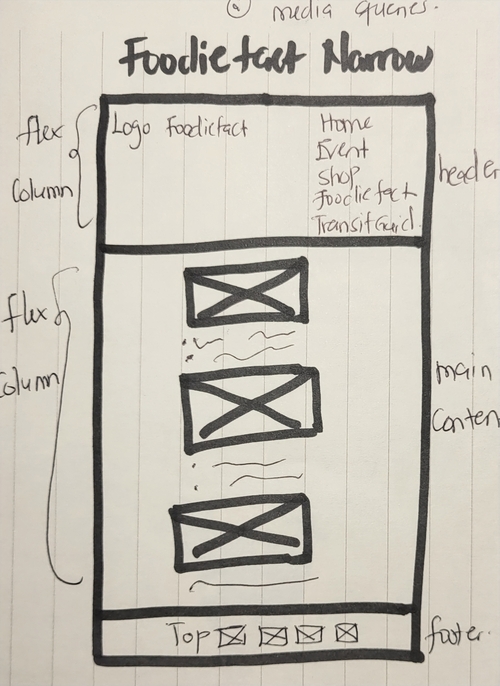 a media queries.
Foodiefact Narrow
flex
Column
Logo Foodiefact
Home
Event
Shop
Foodiefact
TransitGuid.
header
flex
Column
main
Conten
Top
footer.